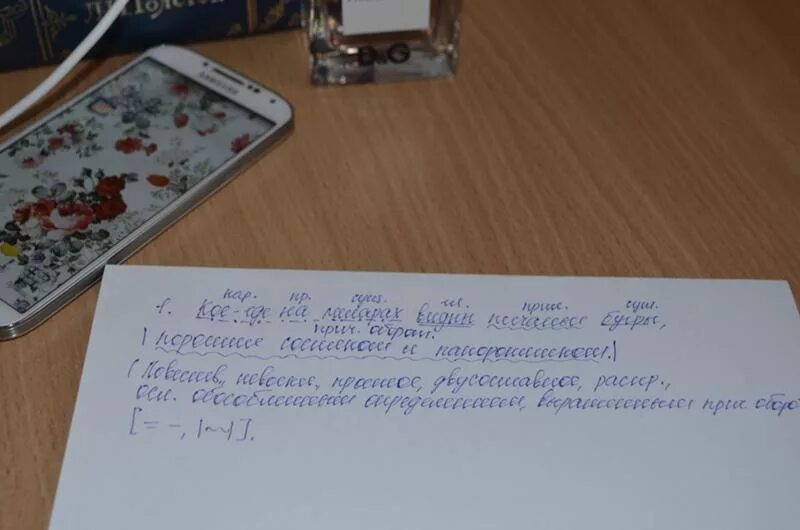 Л.Н.Толстой
SAMSUNG
D&G
нар. пр. сущ. гл. прил. сущ.
1. Кое-где на мшарах видны песчаные бугры,
прич. оборот.
|поросшие сосняком и папоротником.|
(Повеств., невоскл., простое, двусоставное, распр.,
осл. обособленным определением, выраженным прич. оборо
[= –, |~~|].